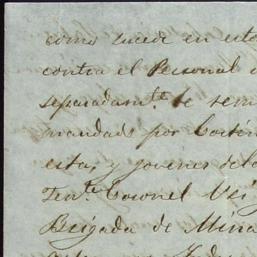 como sucede en esto
contra el Personal
separadamte. se
mandado por Cortin
esta, y jovenes de
Tente. Coronel
Brigada de Mina